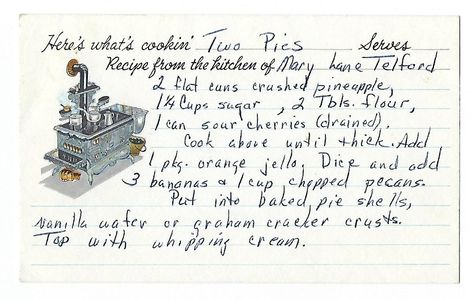 Here's what's cookin' Two Pies Serves
Recipe from the kitchen of Mary Lane Telford
2 flat cans crushed pineapple,
1¼ Cups sugar, 2 Tbls. flour,
1 can sour cherries (drained).
Cook above until thick. Add
1 pkg. orange jello. Dice and add
3 bananas & 1 cup chopped pecans.
Put into baked pie shells,
vanilla wafer or graham cracker crusts.
Top with whipping cream.